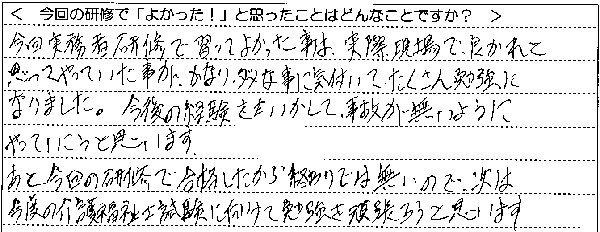 ＜ 今回の研修で「よかった！」と思ったことはどんなことですか？ ＞
今回実務者研修で習ってよかった事は、実際現場で、良かれと
思ってやっていた事が、かなり、な事に気付いて、たくさん勉強に
なりました。今後の経験を生かして、事故が無いように
やっていこうと思います。
あと今回の研修で合格したから終わりでは無いので、次は
今度の介護福祉士試験に向けて勉強を頑張ろうと思います